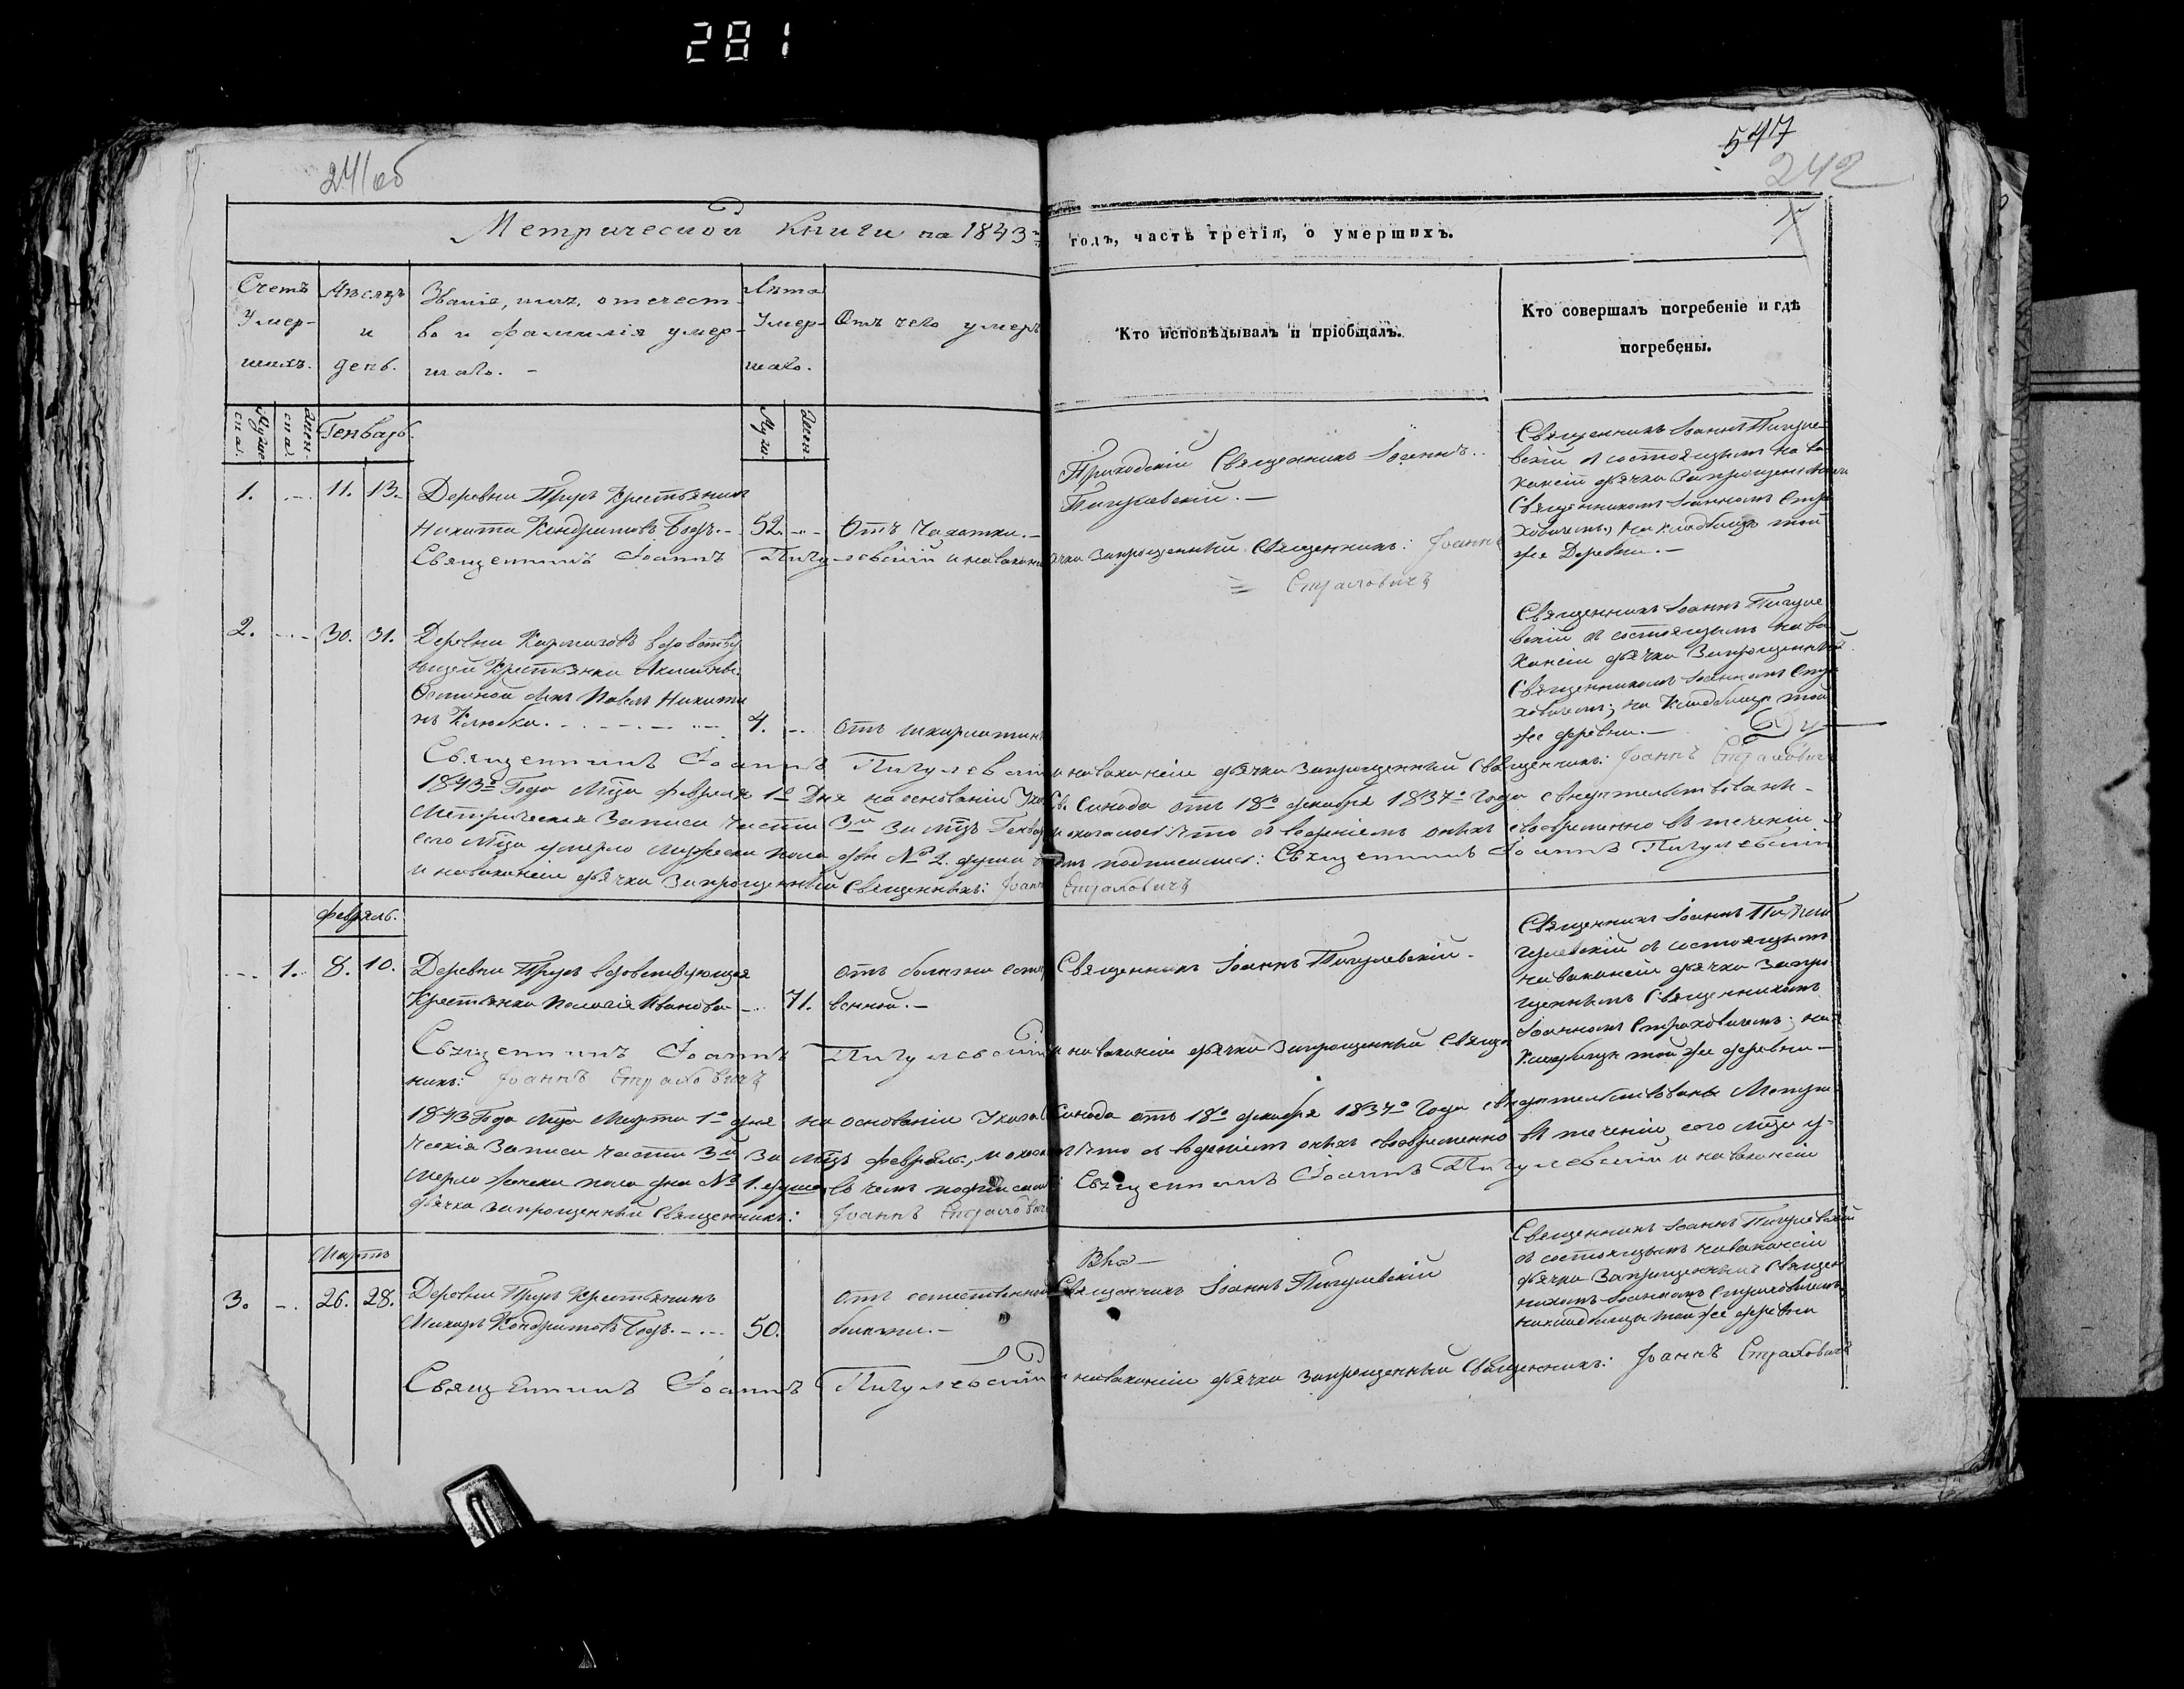 281
241об
547
242
Метрической Книги на 1843й годъ, часть третія, о умершихъ.
Счетъ Умершихъ.
Мѣсяцъ и день.
Званіе, имя, отечество и фамилія умершаго. –
Лѣта Умершаго.
Отъ чего умеръ
Кто исповѣдывалъ и пріобщалъ.
Кто совершалъ погребеніе и гдѣ
погребены.
Муже-
ска.
Женс-
ка.
Генварь.
Муж.
Женс.
1. 11. 13.
Деревни Прусъ Крестьянинъ
Никита Кондратовъ 52. Отъ Чахотки. –
Приходскій Священникъ Іоаннъ
Пигулевскій. –
Священникъ Іоаннъ Пигуле-
вскій съ состоящимъ на ва-
кансіи дьячка Запрещеннымъ
Священникомъ Іоанномъ Стра-
ховичемъ, на кладбищѣ той
же Деревни. –
Священникъ Іоаннъ Пигулевскій и на вакансіи дьячка Запрещенный Священникъ: Іоаннъ
Страховичъ
2. 30. 31.
Деревни вдовству-
ющей Крестьянки
сынъ Павелъ Никити-
нъ 4. отъ шкарлатины
Священникъ Іоаннъ Пигуле-
вскій съ состоящимъ на ва-
кансіи дьячка Запрещеннымъ
Священникомъ Іоанномъ Стра-
ховичемъ; на Кладбищѣ той
же деревни. –
Священникъ Іоаннъ Пигулевскій и на вакансіи дьячка Запрещенный Священникъ: Іоаннъ Страховичъ
1843го Года Мца февраля 1го Дня на основаніи Указа Св. Синода отъ 18го декабря 1837го Года свидѣтельствованы
Метрическія Записи части 3й за Мцъ Генварь и оказалось что съ веденіемъ онихъ своевременно въ теченіи
сего Мца умерло мужеска пола два № 2. душа въ чемъ подписались: Священникъ Іоаннъ Пигулевскій
и на вакансіи дьячка Запрещенный Священникъ: Іоаннъ Страховичъ
февраль.
1. 8. 10.
Деревни Прусъ вдовствующая
Крестьянка Пелагія Иванова 71.
отъ болѣзни естест-
венной. –
Священникъ Іоаннъ Пигулевскій. –
Священникъ Іоаннъ Пи-
гулевскій съ состоящимъ
на вакансіи дьячка Запре-
щеннымъ Священникомъ
Іоанномъ Страховичемъ; на
Кладбищѣ той же деревни –
Священникъ Іоаннъ Пигулевскій и на вакансіи дьячка Запрещенный Священ-
никъ: Іоаннъ Страховичъ
1843 Года Мца Марта 1го дня на основаніи Указа Синода отъ 18го декабря 1837го Года свидѣтельствованы Метри-
ческія Записи части 3й за Мцъ февраль, и оказалось что съ веденіемъ онихъ своевременно въ теченіи сего Мца у-
мерло женска пола одна № 1. душа, въ чемъ подписались: Священникъ Іоаннъ Пигулевскій и на вакансіи
дьячка Запрещенный Священникъ: Іоаннъ Страховичъ
Мартъ
3. 26. 28.
Деревни Прусъ Крестьянинъ
Кондратовъ 50.
отъ естественной
болѣзни. –
Священникъ Іоаннъ Пигулевскій
Священникъ Іоаннъ Пигулевскій
съ состоящимъ на вакансіи
дьячка Запрещеннымъ Священ-
никомъ Іоанномъ Страховичемъ
на кладбищѣ той же деревни
Священникъ Іоаннъ Пигулевскій и на вакансіи дьячка Запрещенный Священникъ: Іоаннъ Страховичъ